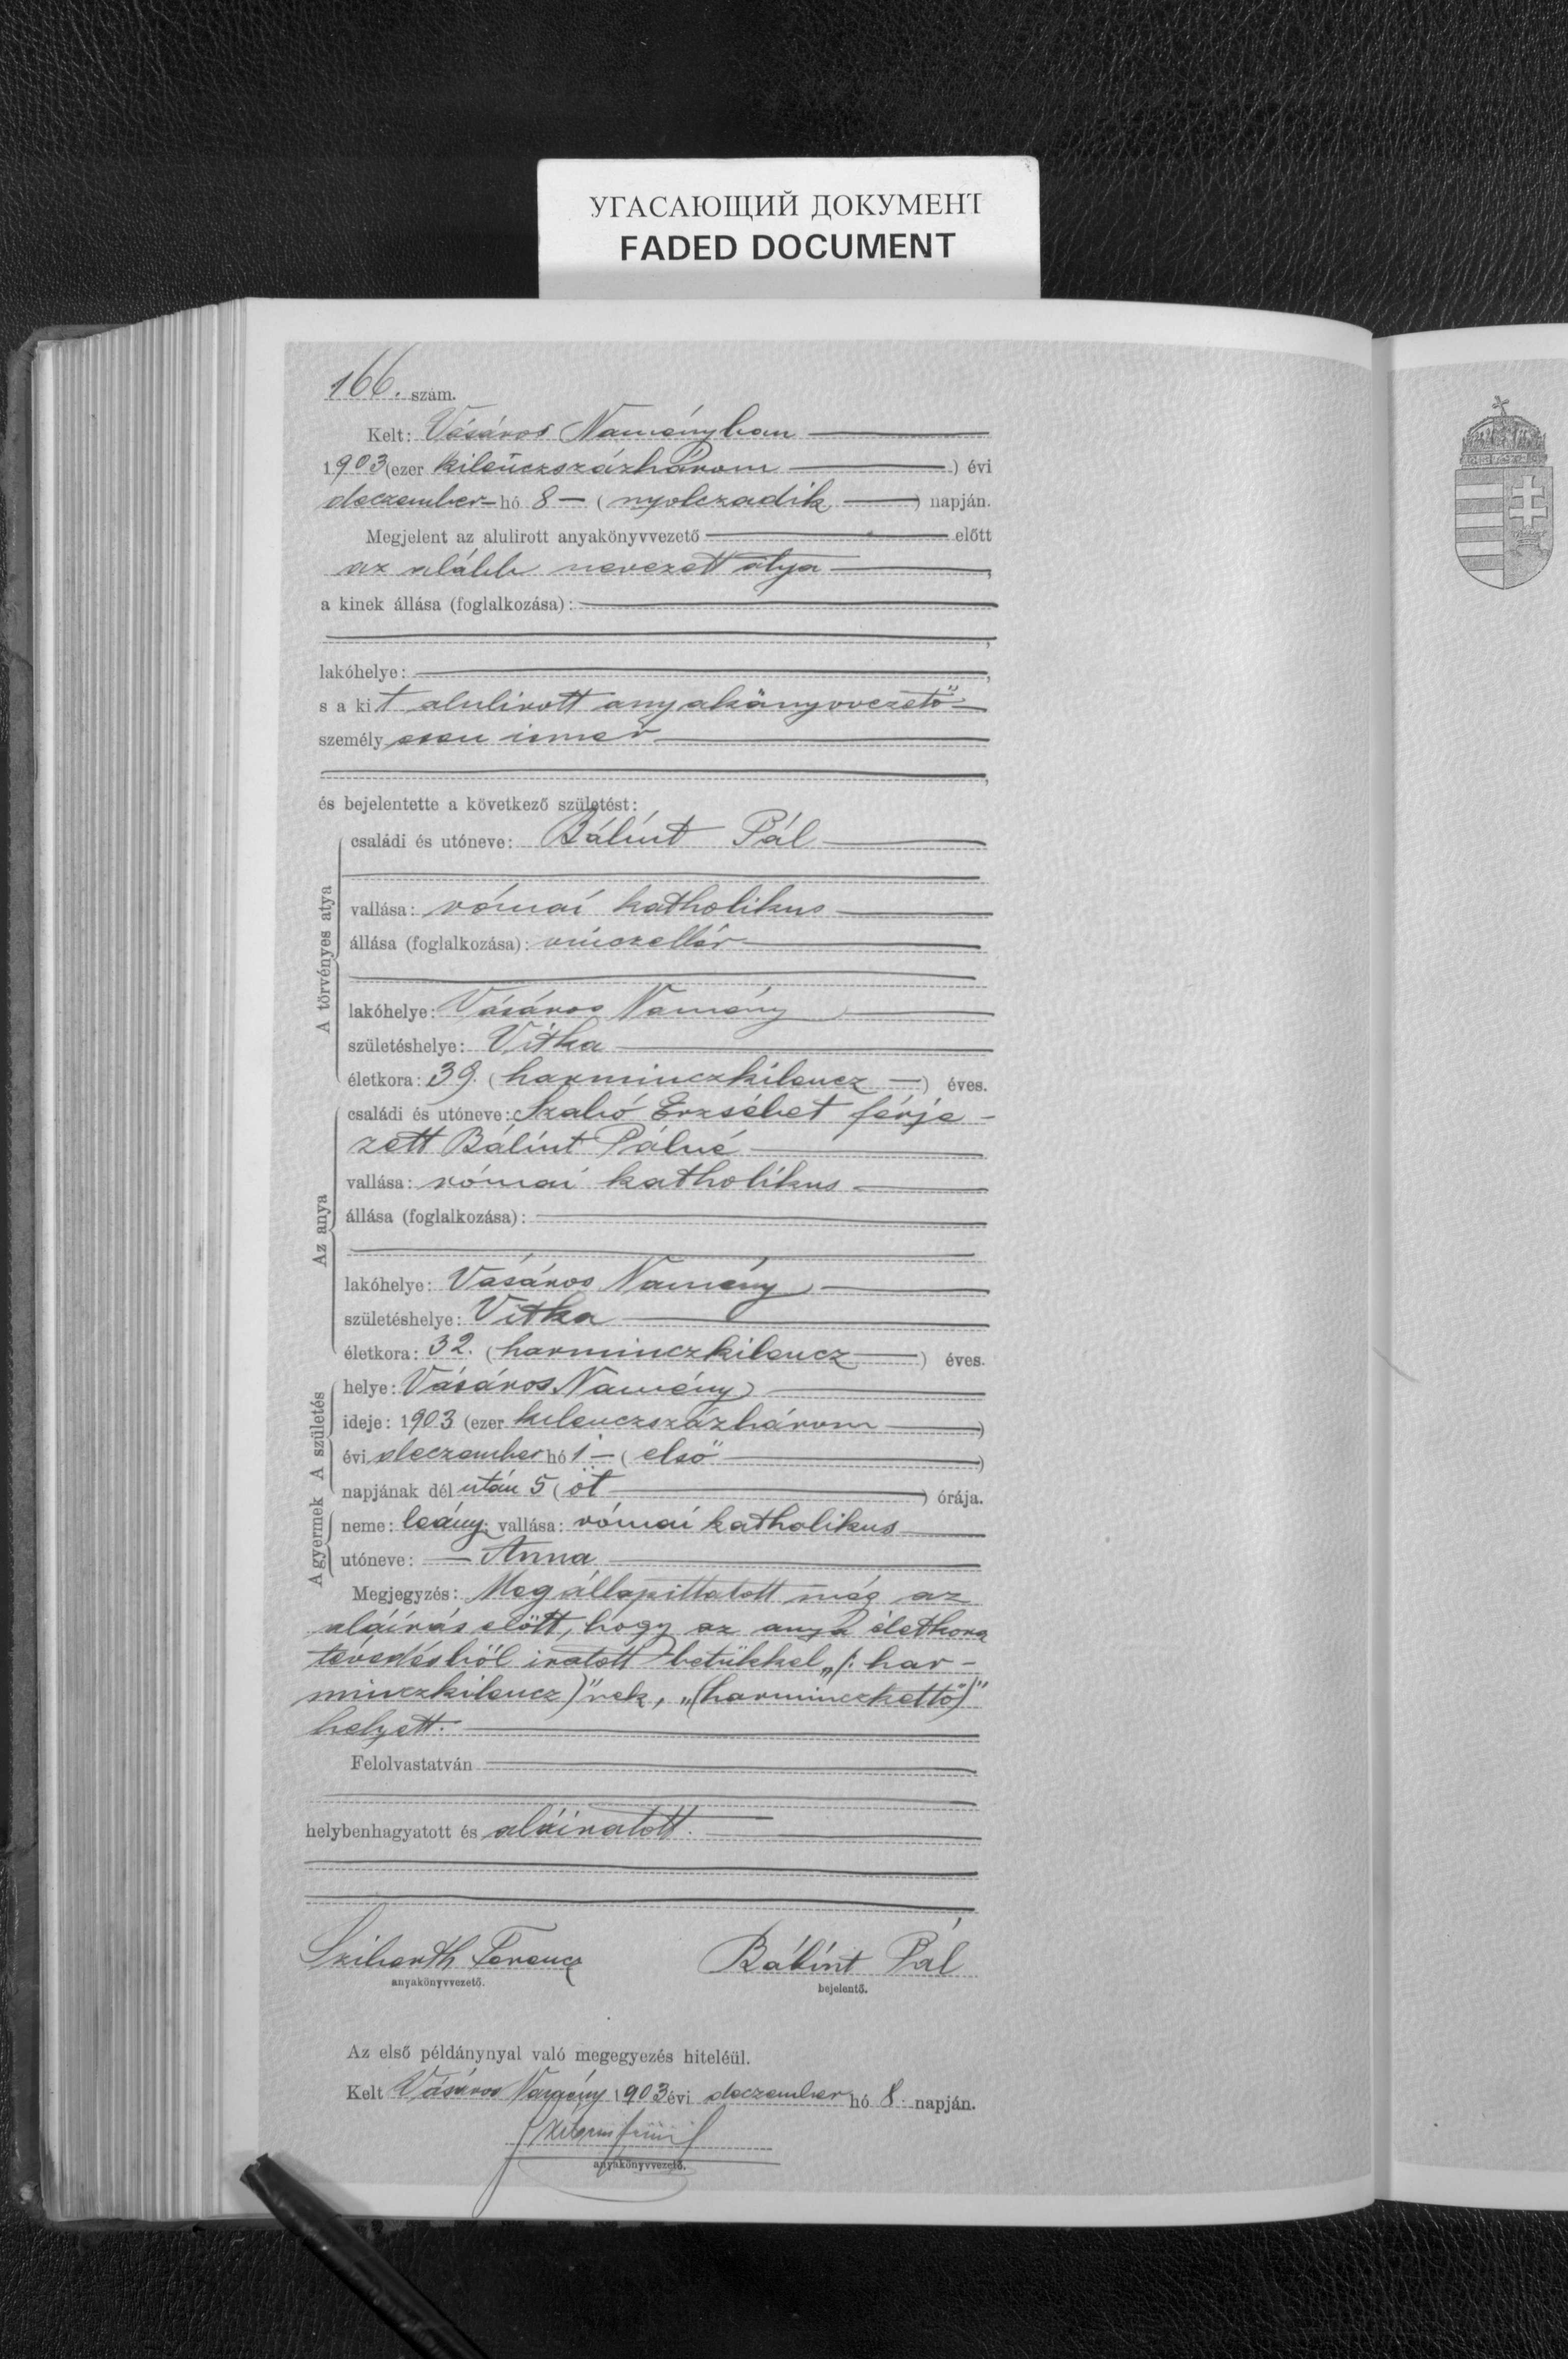 УГАСАЮЩИЙ ДОКУМЕНТ
FADED DOCUMENT
166. szám.
Kelt: Vásáros Naményban
1903 (ezer kilenczszázhárom) évi
deczember hó 8 (nyolczadik) napján.
Megjelent az alulirott anyakönyvvezető előtt
az alább nevezett atya,
a kinek állása (foglalkozása):
,
lakóhelye: ,
s a kit alulirott anyakönyvvezető
személyesen ismer
,
és bejelentette a következő születést:
A törvényes atya
családi és utóneve: Bálint Pál
vallása: római katholikus
állása (foglalkozása): vinczellér
lakóhelye: Vásáros Namény
születéshelye: Vitka
életkora: 39. (harminczkilencz) éves.
Az anya
családi és utóneve: Szabó Erzsébet férje-
zett Bálint Pálné
vallása: római katholikus
állása (foglalkozása):
lakóhelye: Vásáros Namény
születéshelye: Vitka
életkora: 32. (harminczkilencz) éves.
A születés
helye: Vásáros Namény
ideje: 1903 (ezer kilenczszázhárom)
évi deczember hó 1 (első)
napjának dél után 5 (öt) órája.
A gyermek
neme: leány; vallása: római katholikus
utóneve: Anna
Megjegyzés: Megállapittatott még az
aláírás előtt, hogy az anya életkora
tévedésből iratott betükkel „(: har-
minczkilencz)"nek, „(harminczkettő)"
helyett.
Felolvastatván
helybenhagyatott és aláiratott.
Szibenth Ferencz
anyakönyvvezető.
Bálint Pál
bejelentő.
Az első példánynyal való megegyezés hiteléül.
Kelt Vásáros Namény 1903 évi deczember hó 8 napján.
anyakönyvvezető.